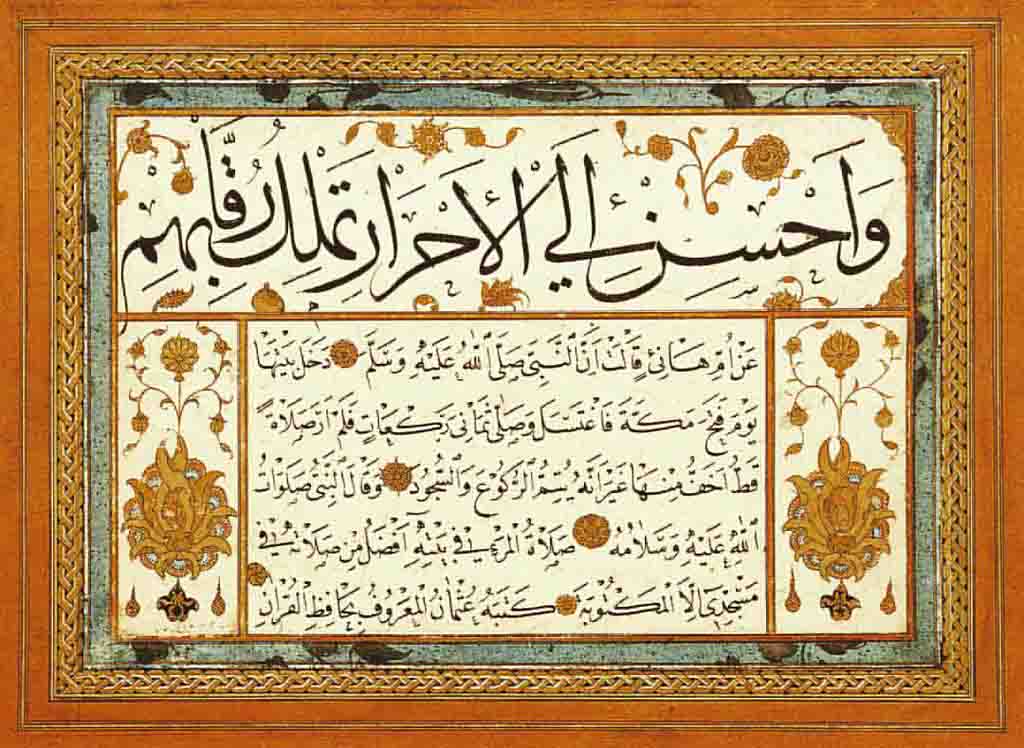 وَاَحْسِنْ اِلَي الْاَحْرَارِ تَمْلِكْ رِقَابَهُمْ
عَنْ اُمِّ هَانِئٍ قَالَتْ اِنَّ النَّبِيَّ صَلَّى اللّٰهُ عَلَيْهِ وَسَلَّمَ دَخَلَ بَيْتَهَا
يَوْمَ فَتْحِ مَكَّةَ فَاغْتَسَلَ وَصَلَّى ثَمَانِيَ رَكَعَاتٍ فَلَمْ اَرَ صَلَاةً
قَطُّ اَخَفَّ مِنْهَا غَيْرَ اَنَّهُ يُتِمُّ الرُّكُوعَ وَالسُّجُودَ وَقَالَ النَّبِيُّ صَلَوَاتُ
اللّٰهِ عَلَيْهِ وَسَلَامُهُ صَلَاةُ الْمَرْءِ فِي بَيْتِهِ اَفْضَلُ مِنْ صَلَاتِهِ فِي
مَسْجِدِي اِلَّا الْمَكْتُوبَةَ كَتَبَهُ عُثْمَانُ الْمَعْرُوفُ بِحَافِظِ الْقُرْآنِ